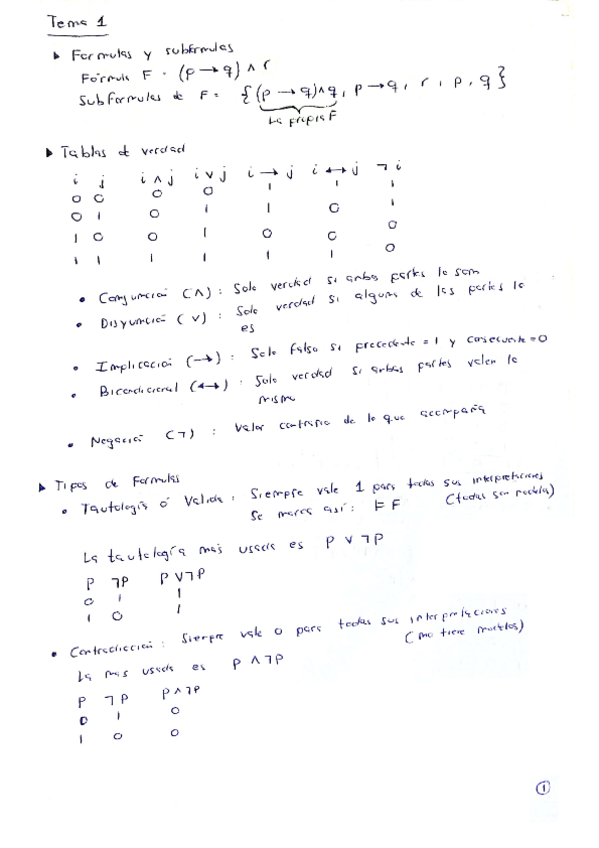 Tema 1
▸ Formulas y subfórmulas
Fórmula F = (p → q) ∧ r
Subformulas de F = {(p → q)∧q, p → q, r, p, q}
La propia F
▸ Tablas de verdad
i j i ∧ j i ∨ j i → j i ↔ j ¬ i
0 0 0 0 1 1 1
0 1 0 1 1 0 1
1 0 0 1 0 0 0
1 1 1 1 1 1 0
• Conjunción (∧) : Solo verdad si ambas partes lo son
• Disyunción (∨) : Solo verdad si alguna de las partes lo
es
• Implicación (→) : Solo falso si precedente = 1 y consecuente = 0
• Bicondicional (↔) : Solo verdad si ambas partes valen lo
mismo
• Negación (¬) : Valor contrario de lo que acompaña
▸ Tipos de Formulas
• Tautología ó Valida : Siempre vale 1 para todas sus interpretaciones
Se marca así: ⊨ F (todas son modelos)
La tautología más usada es P ∨ ¬P
P ¬P P ∨ ¬P
0 1 1
1 0 1
• Contradicción : Siempre vale 0 para todas sus interpretaciones
(no tiene modelos)
La mas usada es P ∧ ¬P
P ¬P P ∧ ¬P
0 1 0
1 0 0
1